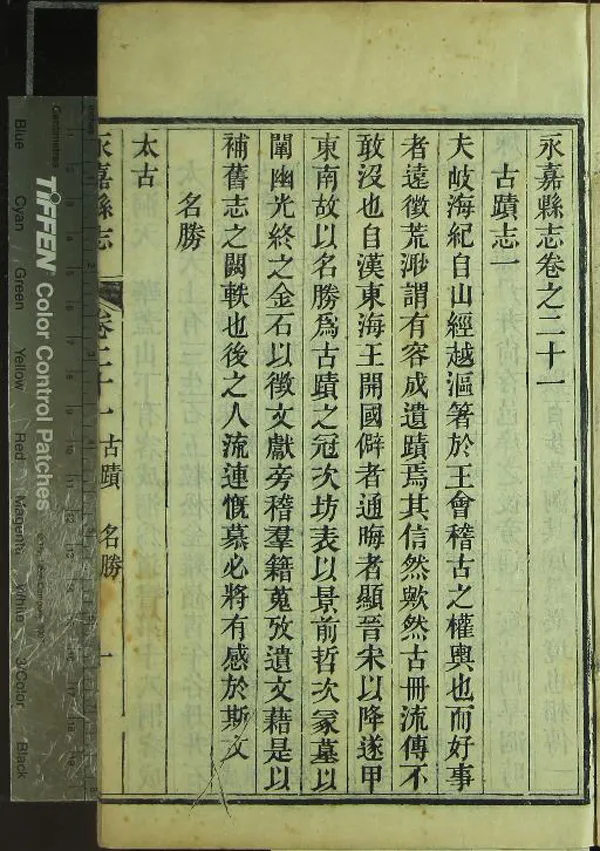 永嘉縣志卷之二十一
古蹟志一
夫岐海紀自山經越漚箸於王會稽古之權輿也而好事
者遠徵荒渺謂有容成遺蹟焉其信然歟然古冊流傳不
敢沒也自漢東海王開國僻者通晦者顯晉宋以降遂甲
東南故以名勝爲古蹟之冠次坊表以景前哲次冢墓以
闡幽光終之金石以徵文獻旁稽羣籍蒐攷遺文藉是以
補舊志之闕軼也後之人流連慨慕必將有感於斯文
名勝
太古
永嘉縣志 卷二十一 古蹟 名勝 一
Centimetres
TIFFEN Color Control Patches
Blue
Cyan
Green
Yellow
Red
Magenta
White
3/Color
Black